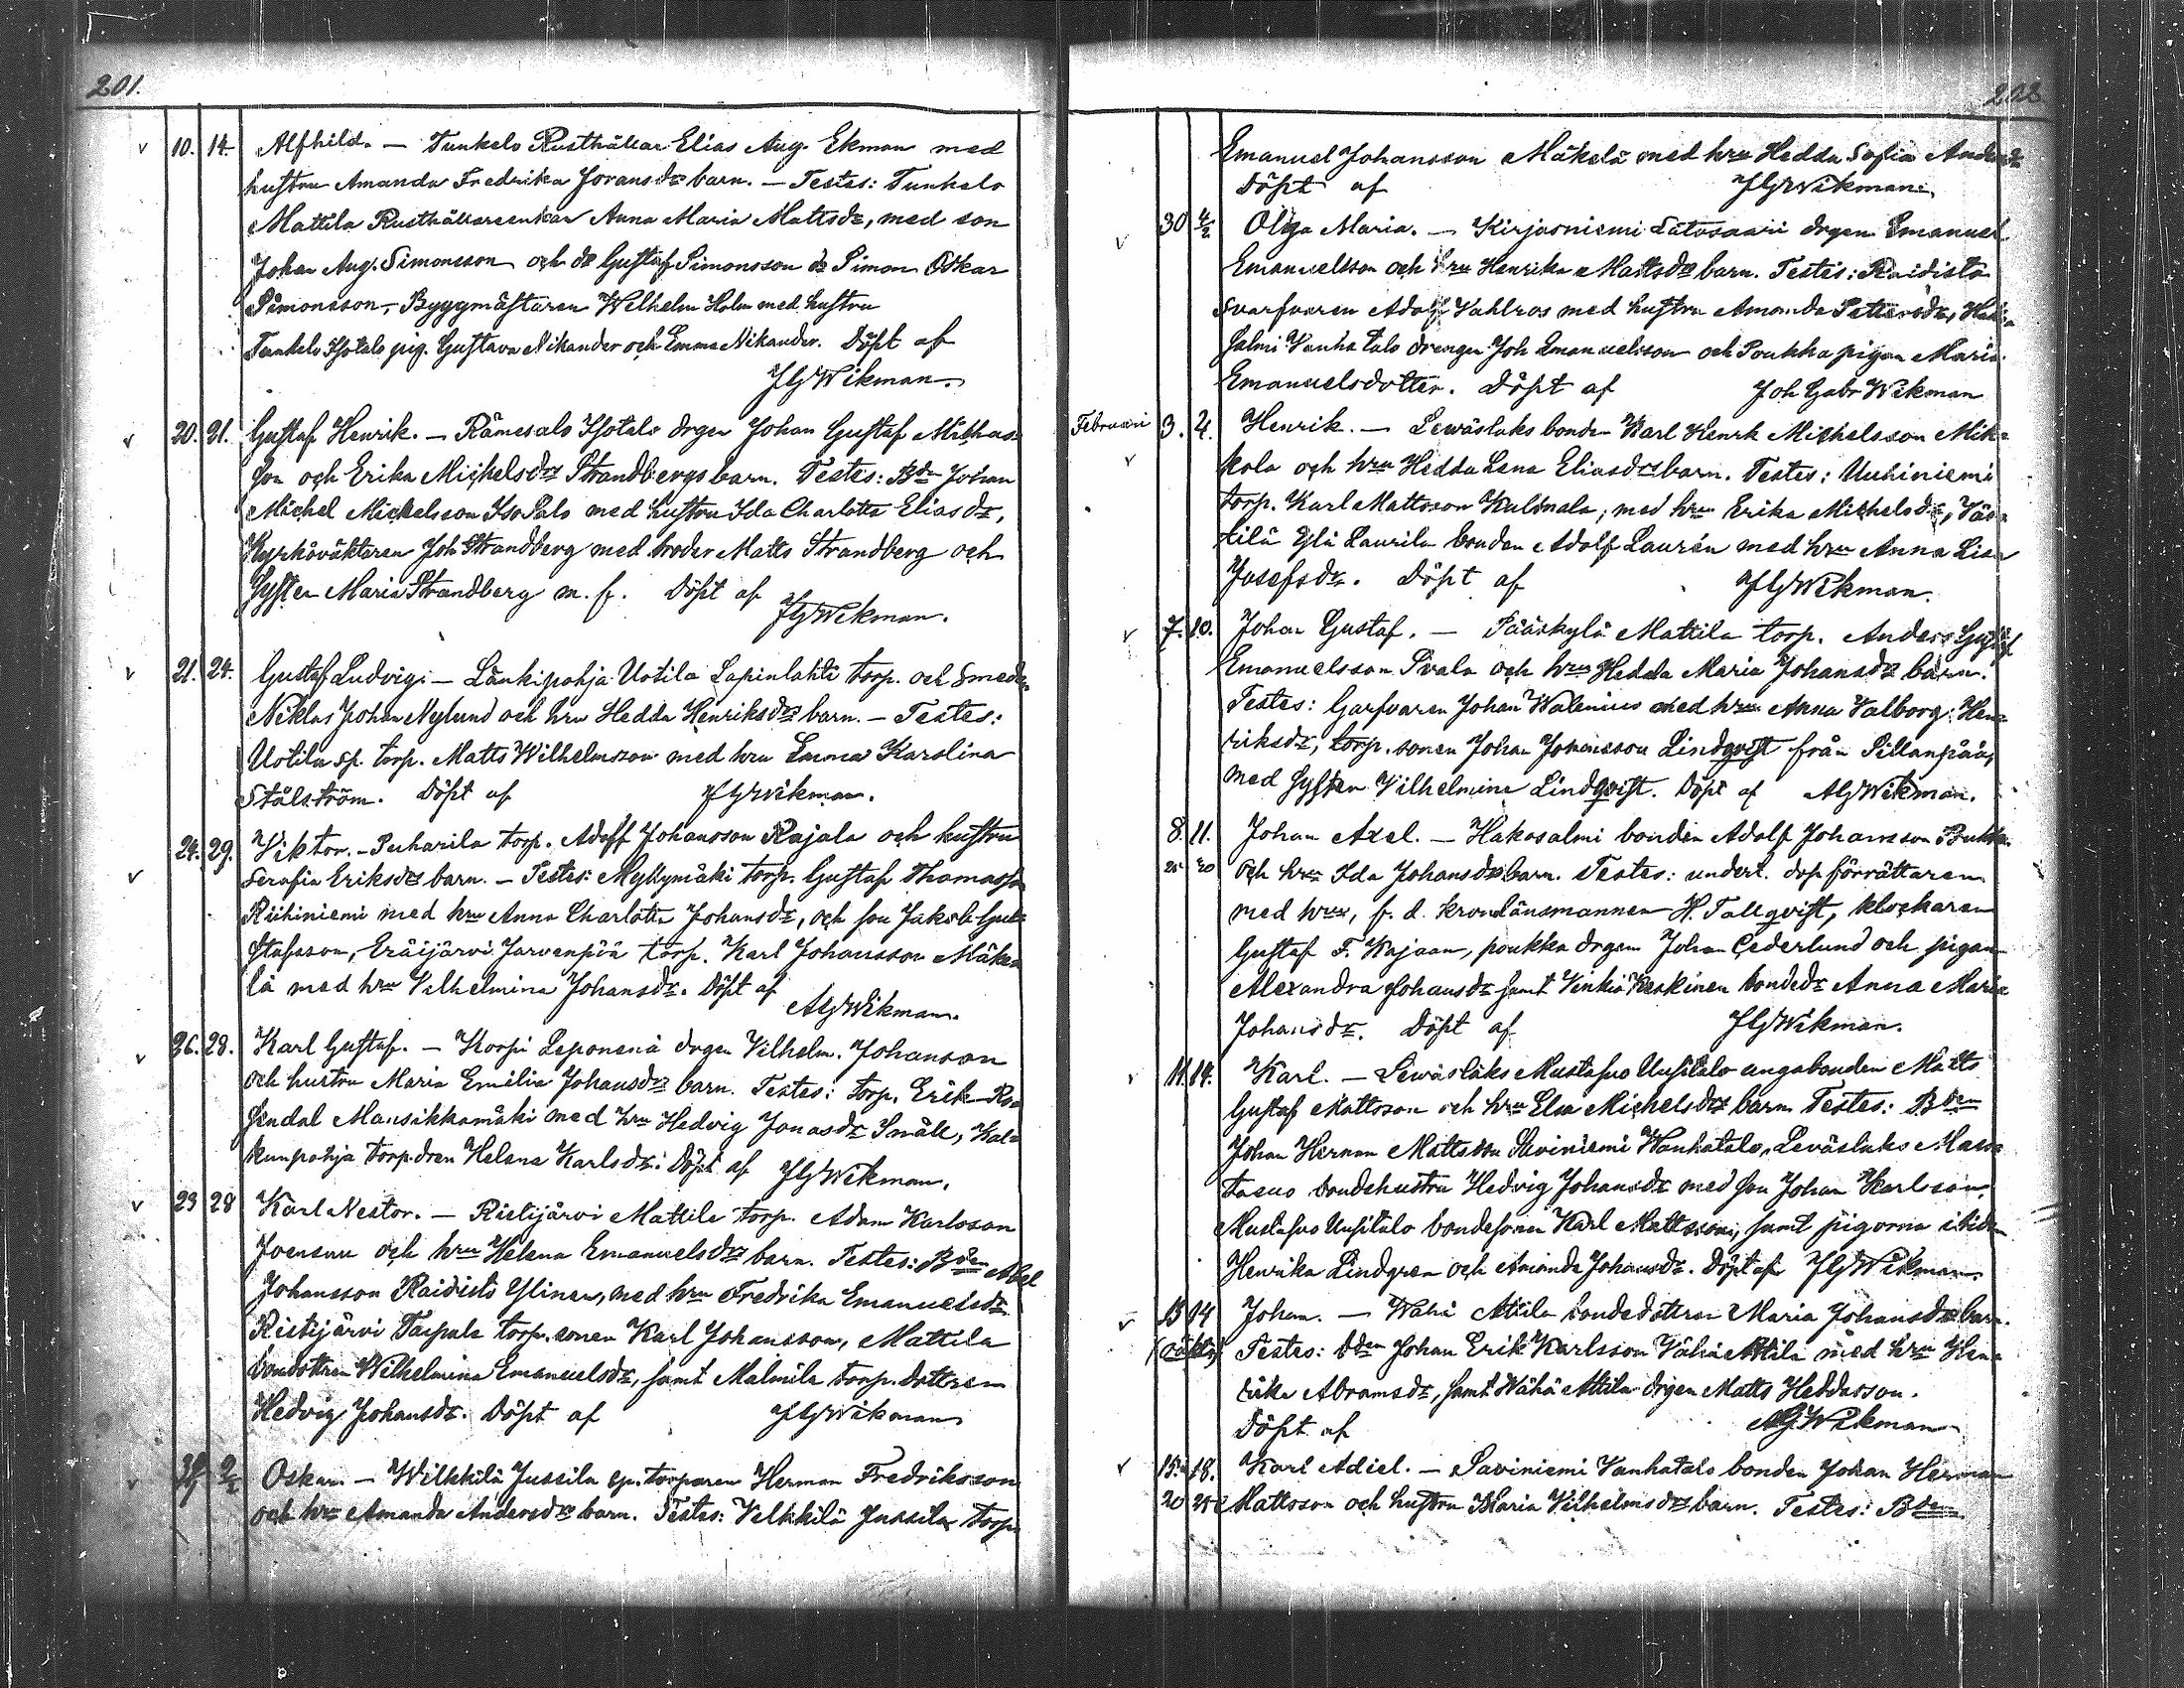 201.
10. 14. Alfhild. — Tunkelo Rusthållar Elias Aug. Ekman med
hustru Amanda Fredrika Joransdr barn. — Testes: Tunkelo
Mattila Rusthållareenkan Anna Maria Mattsdr, med son
Johan Aug. Simonsson och dr Gustaf Simonsson dr Simon Oskar
Simonsson, Byggmästaren Wilhelm Holm med hustru
Tunkelo Isotalo pig. Gustava Nikander och Emma Nikander. Döpt af
JGWikman.
20. 21. Gustaf Henrik. — Rämesalo Isotalo drgen Johan Gustaf Mathas-
son och Erika Michelsdr Strandbergs barn. Testes: Bdn Johan
Michel Mickelsson Iso Palo med hustru Ida Charlotta Eliasdr,
Kyrkoväktaren Joh Strandberg med broder Matts Strandberg och
Systen Maria Strandberg m. f. Döpt af
JGWikman.
21. 24. Gustaf Ludvig — Länkipohja Uotila Lapinlahti torp. och Smeden
Niklas Johan Nylund och hru Hedda Henriksdrs barn. — Testes:
Uotila sp. torp. Matts Wilhelmsson med hru Emma Karolina
Stålström. Döpt af JGWikman.
24. 29. Viktor. — Puharila torp. Adolf Johansson Rajala och hustru
Serafia Eriksdrs barn. — Testes: Myllymäki torp. Gustaf Thomasson
Riihiniemi med hru Anna Charlotta Johansdr, och son Jakob Gu-
stafsson, Eräjärvi Jarvenpää torp. Karl Johansson Mäke-
lä med hru Vilhelmina Johansdr. Döpt af
AGWikman.
26. 28. Karl Gustaf. — Korpi Leponenä drgen Vilhelm Johanson
och hustru Maria Emilia Johansdrs barn. Testes: torp. Erik Ro-
sendal Mansikkamäki med hru Hedvig Jonasdr Snäll, Kal-
kunpohja torp.dren Helena Karlsdr. Döpt af JGWikman.
23 28 Karl Nestor. — Ristijärvi Mattila torp. Adam Karlsson
Joensuu och hru Helena Emanuelsdrs barn. Testes: Bden Abel
Johansson Raidisto Ylinen, med hru Fredrika Emanuelsdr
Ristijärvi Taipale torp. sonen Karl Johansson, Mattila
bondottren Wilhelmina Emanuelsdr, samt Malmila torp. dottren
Hedvig Johansdr. Döpt af JGWikman
Oskar. — Wilkkilä Jussila sp. torparen Herman Fredriksson
och hru Amanda Andersdrs barn. Testes: Velkkilä Jussila torp
202
Emanuel Johansson Mäkelä med hru Hedda Sofia Andersdr
Döpt af JGWikman.
30 4/2 Olga Maria. — Kirjasniemi Latosaari drgen Emanuel
Emanuelsson och hru Henrika Mattsdrs barn. Testes: Raidisto
Svarfvaren Adolf Vahlros med hustru Amanda Pettersdr, Haka-
salmi Vanhatalo drengen Joh Emanuelsson och Poukka pigan Maria
Emanuelsdotter. Döpt af Joh Gabr Wikman
Februari 3. 4. Henrik. — Lewäslaks bonden Karl Henrk Michelsson Mik-
kola och hru Hedda Lena Eliasdrs barn. Testes: Uuhiniemi
torp. Karl Mattsson Kulmala, med hru Erika Michelsdr, Väs-
tilä Ylä Laurila bonden Adolf Laurén med hru Anna Lisa
Josefsdr. Döpt af JGWikman.
7. 10. Johan Gustaf. — Pääskylä Mattila torp. Anders Gustaf
Emanuelsson Svala och hru Hedda Maria Johansdr barn.
Testes: Garfvaren Johan Walenius med hru Anna Valborg Hen-
riksdr, torp. sonen Johan Johansson Lindqvist från Pillanpää,
med Systen Vilhelmina Lindqvist. Döpt af AGWikman.
8. 11. Johan Axel. — Hakosalmi bonden Adolf Johansson Poukka
och hru Ida Johansdrs barn. Testes: undert. dopförrättaren
med hru, f. d. kronolänsmannen H. Tallqvist, klockaren
Gustaf F. Kajaan, poukka drgen Johan Cederlund och pigan
Alexandra Johansdr samt Vinkiä Keskinen bondedr Anna Maria
Johansdr. Döpt af JGWikman.
11. 14. Karl. — Lewäslaks Mustasuo Uusitalo ungabonden Matts
Gustaf Mattsson och hru Elsa Michelsdrs barn Testes: Bden
Johan Herman Mattsson Saviniemi Wanhatalo, Leväslaks Mus-
tasuo bondehustru Hedvig Johansdr med son Johan Karlsson,
Mustasuo Uusitalo bondesonen Karl Mattsson, samt pigorna ibidm
Henrika Lindgren och Amanda Johansdr. Döpt af JGWikman.
13 14 Johan. — Wähä Attila bondedottren Maria Johansdrs barn.
(oäkta) Testes: bden Johan Erik Karlsson Vähä Attila med hru Hen-
rika Abramsdr, samt Wähä Attila drgen Matts Heddasson.
Döpt af AGWikman
15. 18. Karl Adiel. — Saviniemi Vanhatalo bonden Johan Herman
20 25 Mattsson och hustru Maria Vilhelmsdrs barn. Testes: Bden